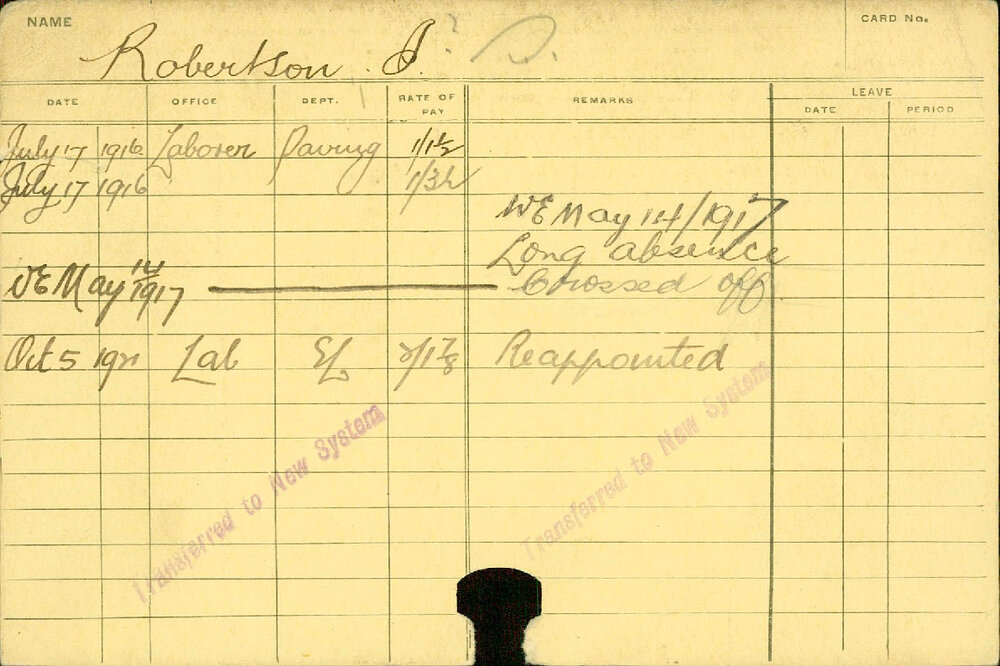 NAME
CARD No.
Robertson J. ? D.
DATE OFFICE DEPT. RATE OF PAY REMARKS LEAVE
DATE PERIOD
July 17 1916 Laborer Paving 1/1½
July 17 1916 1/3½
WE May 14/1917
Long absence
WE May 14 1917 Crossed off
Oct 5 1921 Lab EL 2/1⅞ Reappointed
Transferred to New System
Transferred to New System